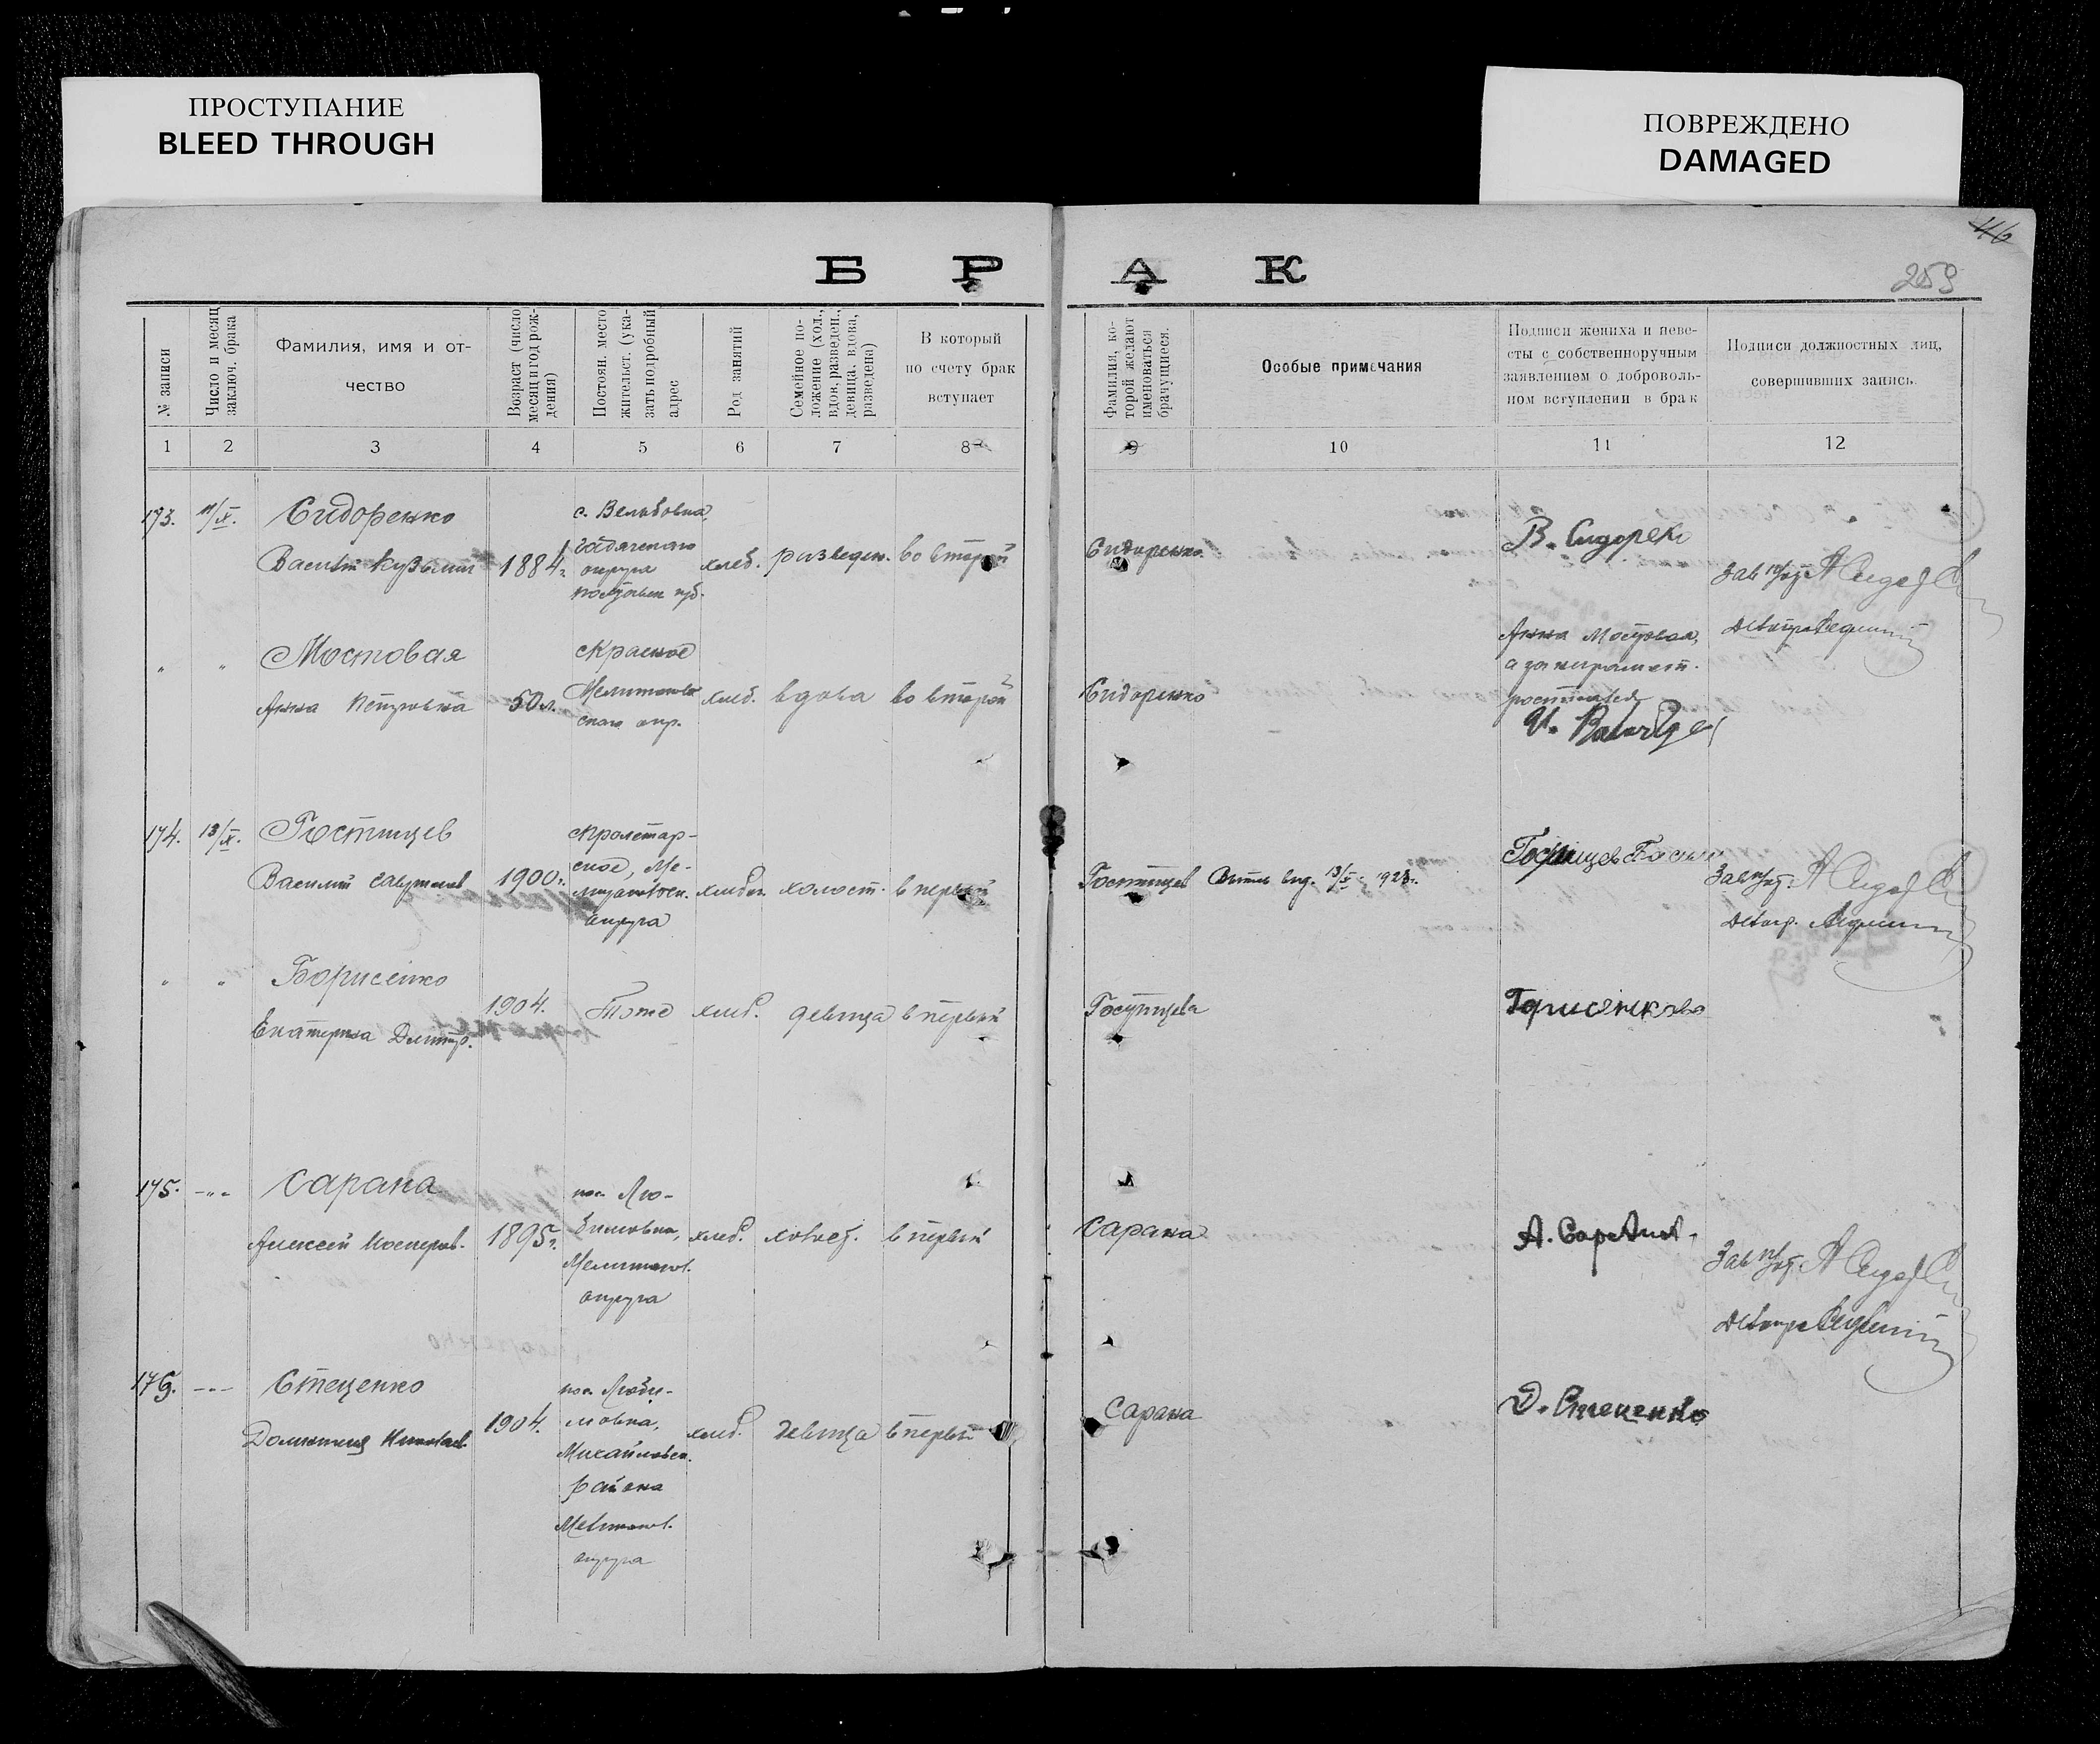 ПРОСТУПАНИЕ
BLEED THROUGH
ПОВРЕЖДЕНО
DAMAGED
46
259
Б Р А К
№ записи
Число и месяц
заключ. брака
Фамилия, имя и от-
чество
Возраст (число
месяц и год рож-
дения)
Постоян. место
жительст. (ука-
зать подробный
адрес
Род занятий
Семейное по-
ложение (хол.,
вдов, разведен.,
девица, вдова,
разведена)
В который
по счету брак
вступает
Фамилия, ко-
торой желают
именоваться
брачущиеся.
Особые примечания
Подписи жениха и неве-
сты с собственноручным
заявлением о доброволь-
ном вступлении в брак
Подписи должностных лиц,
совершивших запись.
1 2 3 4 5 6 7 8 9 10 11 12
173. 11/X. Сидоренко
Васил Кузьмич 1884 г.
с. Вельбовка,
Гадячского
округа
хлеб. разведен. во второй
Сидоренко
В. Сидорен
" " Мостовая
Анна Петровна 50 л.
с Красное
Мелитополь
ского окр.
хлеб. вдова во второй
Сидоренко
Анна Мостовая,
а за неграмотн.
174. 13/X. Гостищев
Василий 1900 г.
с Пролетар-
ское, Ме-
округа
холост. в первый
Гостищев
13/X 1923 г.
Гостищев
" " Борисенко
Екатерина Дмитр. 1904.
Тоже хлеб. девица в первый
Гостищева
175. -"- Сарана
Алексей 1895 г.
пос. Лю-
бимовка,
Мелитопол.
округа
хлеб. холост. в первый
Сарана
А. Сарана
176. -"- Стеценко
Домникия Николаев. 1904.
пос. Люби-
мовка,
Михайловск.
района
Мелитопол.
округа
хлеб. девица в первый
Сарана
Д. Стеценко